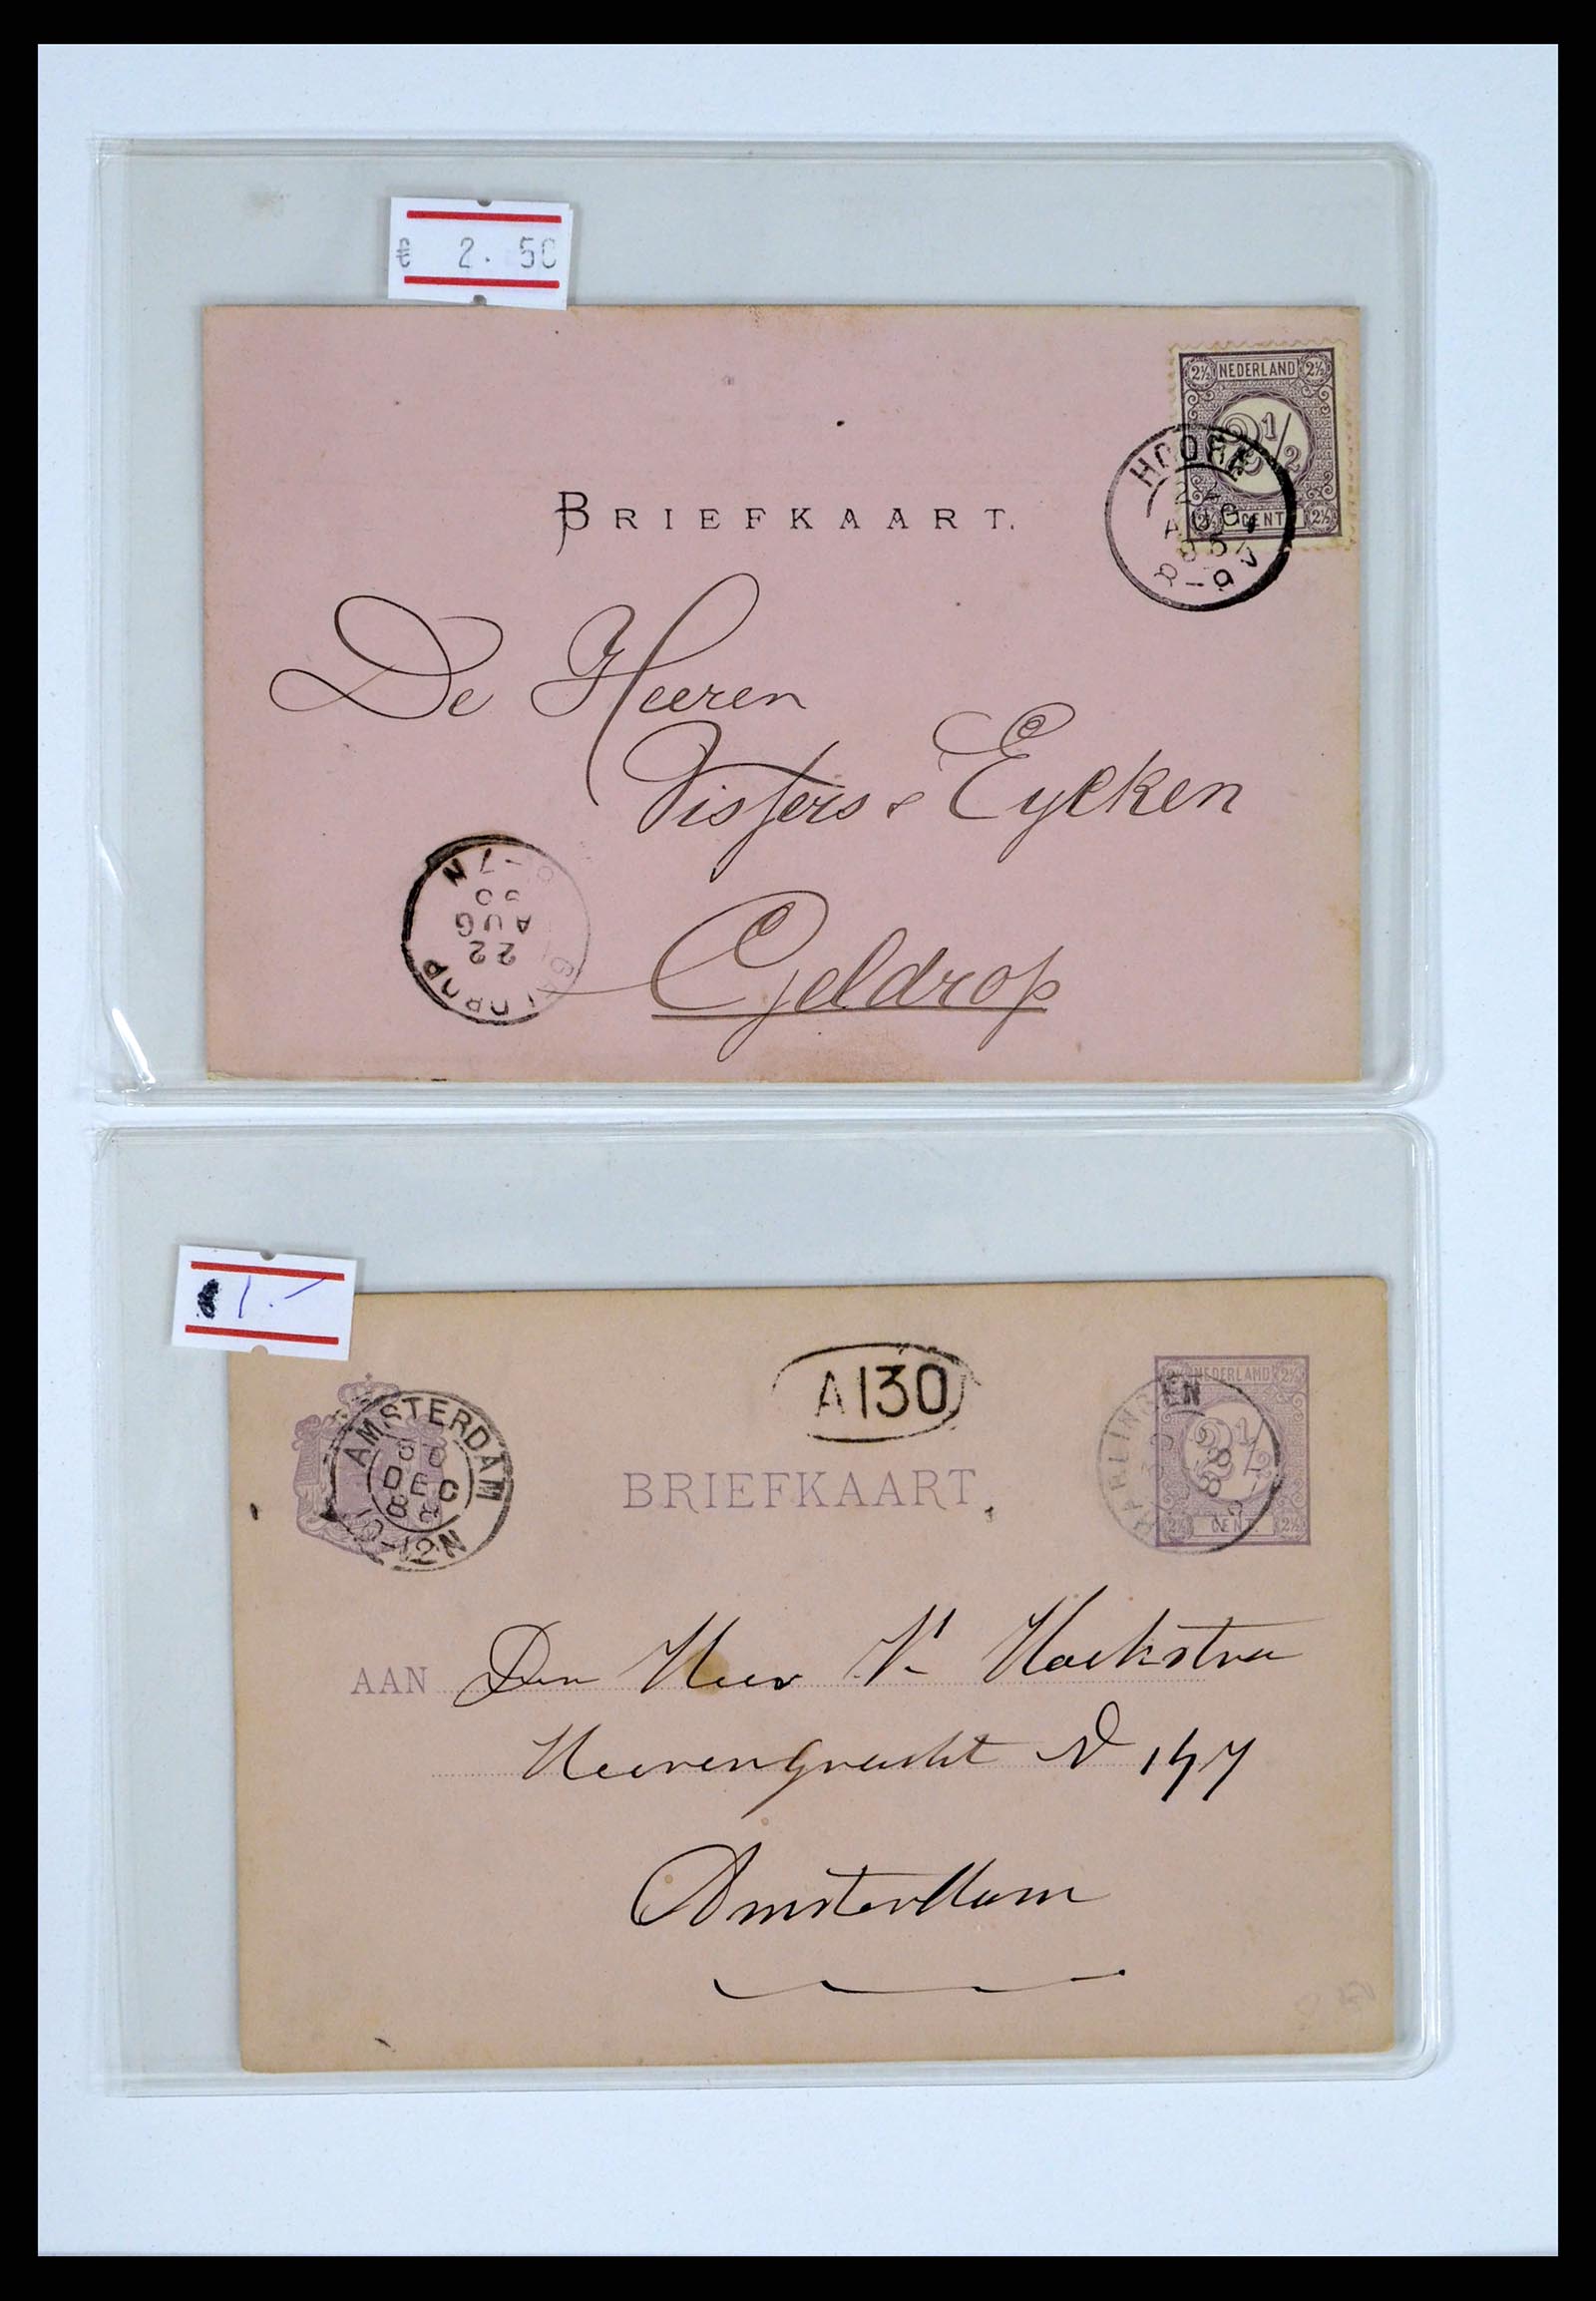 € 2.50
2½ NEDERLAND 2½
2½
2½ CENT 2½
22
AUG
8-9V
BRIEFKAART.
De Heeren
Vissers & Eycken
Geldrop
GELDROP
22
AUG
6-7N
1.-
A130
AMSTERDAM
DEC
10-12N
BRIEFKAART.
2½ NEDERLAND 2½
2½
2½ CENT 2½
HARLINGEN
AAN Den Heer N. Hoekstra
Heerengracht No 147
Amsterdam